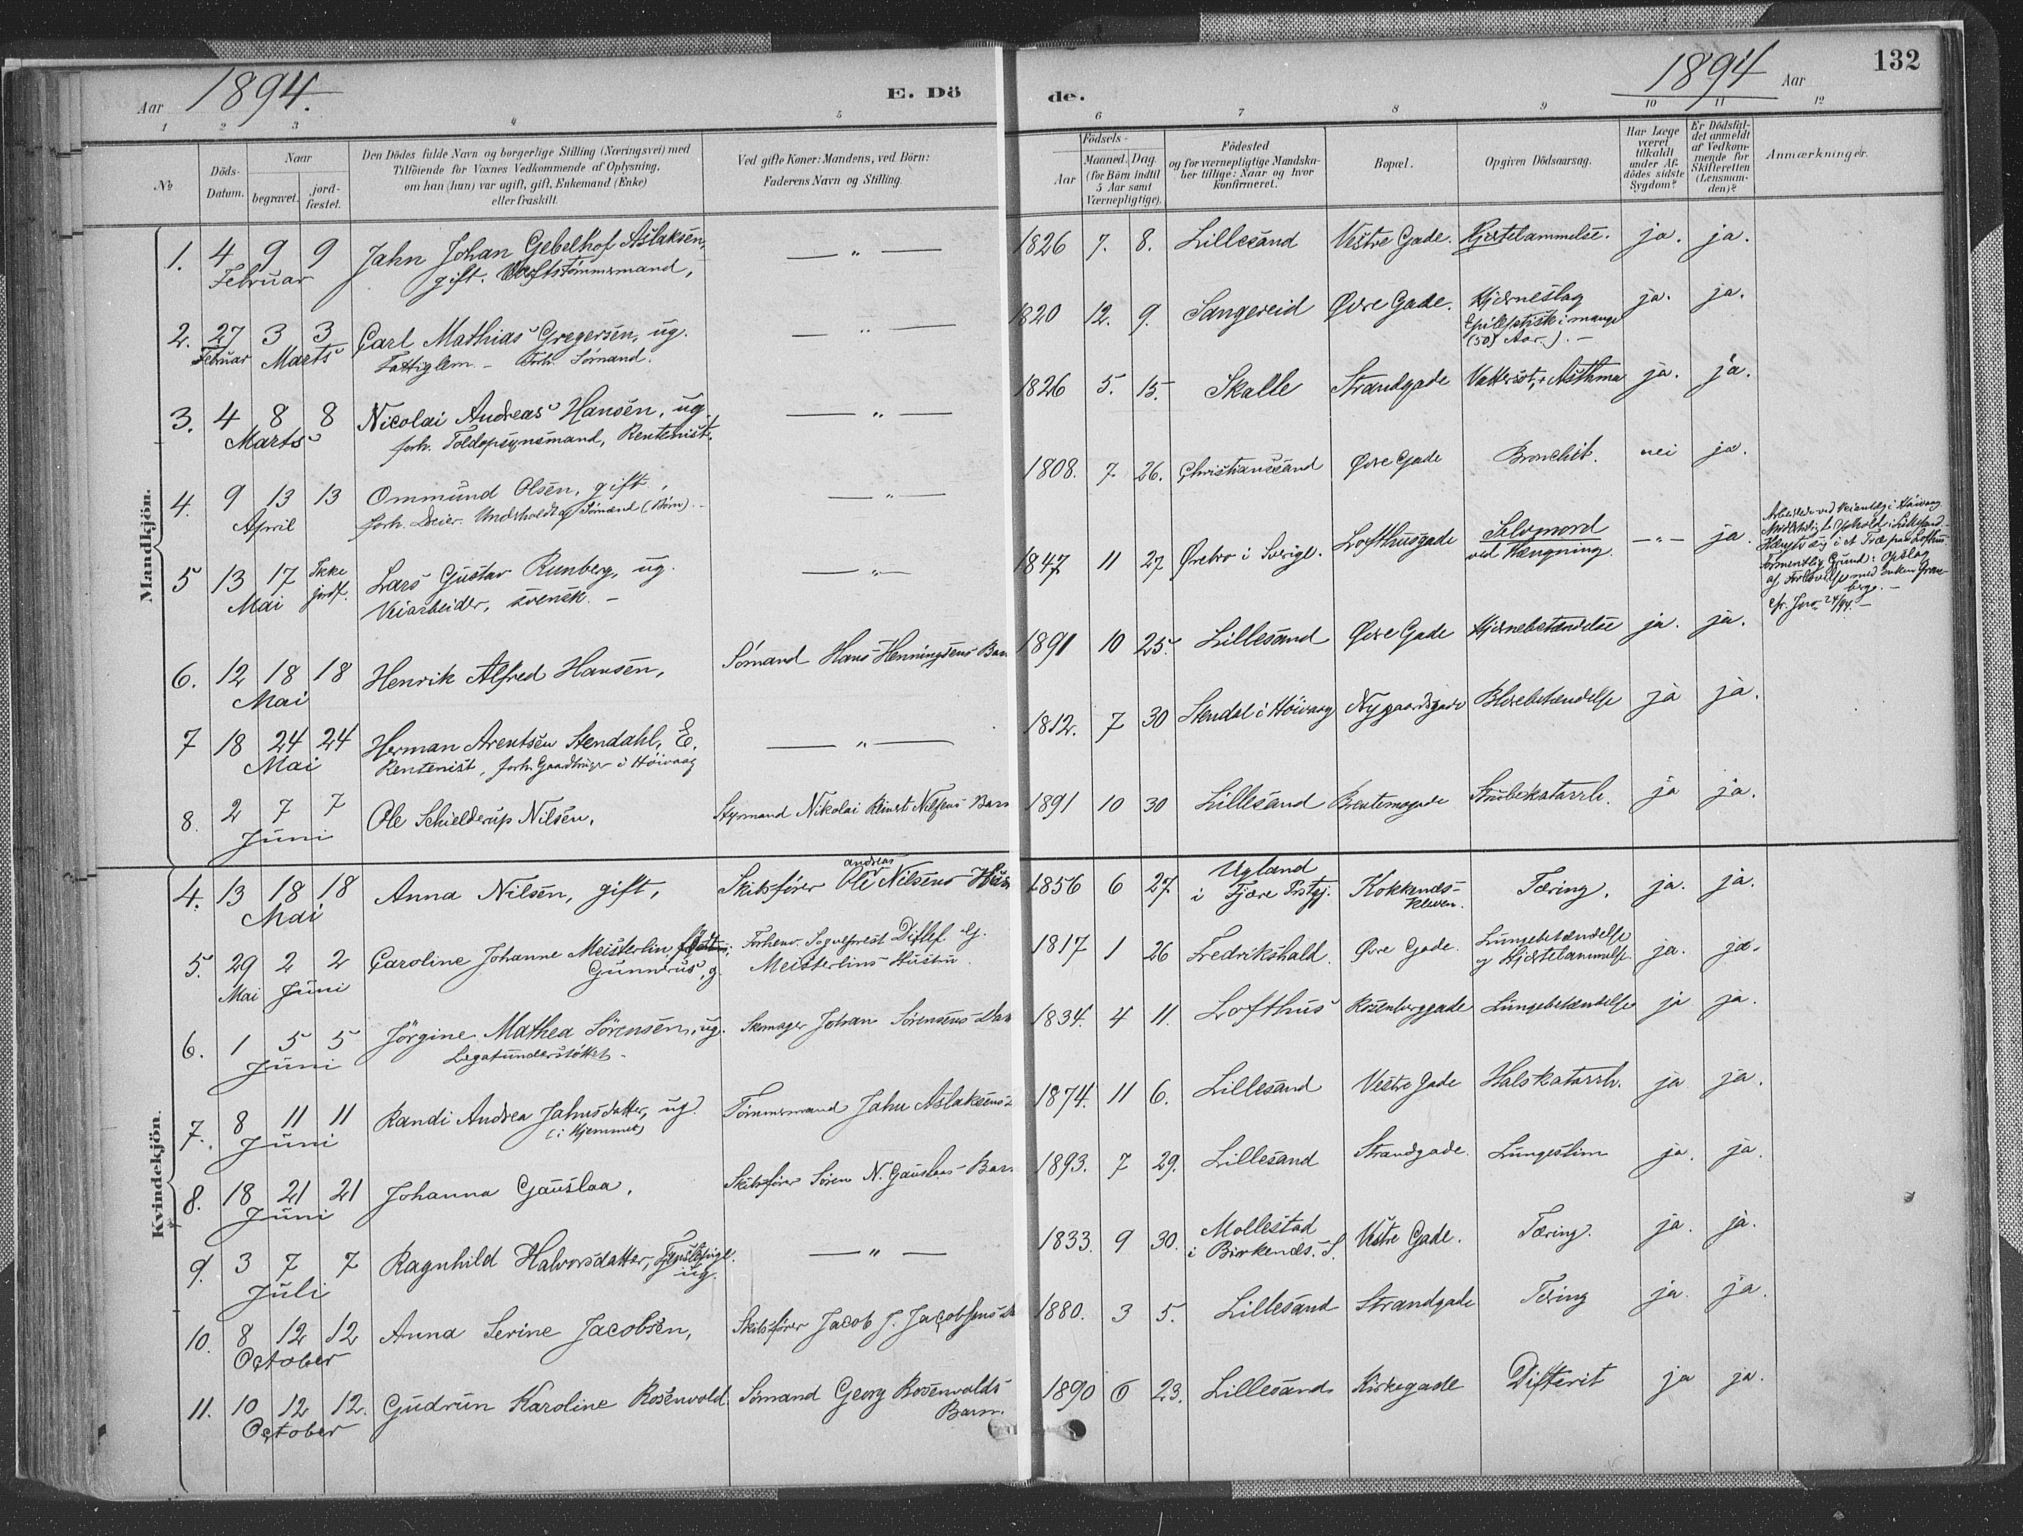 Aar 1894.
E. Dö
de.
1894 Aar
132
1 2 3 4 5 6 7 8 9 10 11 12
№
Döds-Datum.
Naar
begravet.
jord-fæstet.
Den Dödes fulde Navn og borgerlige Stilling (Næringsvei) med
Tilföiende for Voxnes Vedkommende af Oplysning,
om han (hun) var ugift, gift, Enkemand (Enke)
eller fraskilt.
Ved gifte Koner: Mandens, ved Börn:
Faderens Navn og Stilling.
Födsels-
Aar
Maaned. Dag.
(for Börn indtil
5 Aar samt
Værnepligtige).
Födested
og for værnepligtige Mandska-
ber tillige: Naar og hvor
konfirmeret.
Bopæl.
Opgiven Dödsaarsag.
Har Læge
været
tilkaldt
under Af-
dödes sidste
Sygdom?
Er Dödsfal-
det anmeldt
af Vedkom-
mende for
Skifteretten
(Lensman-
den)?
Anmærkninger.
Mandkjön.
1. 4 9 9 Jahn Johan Gebelhof Aslaksen, — „ — 1826 7. 8. Lillesand Vestre Gade. Hjertelammelse. ja. ja.
Februar gift. Værftstømmermand,
2. 27 3 3 Carl Mathias Gregersen, ug. — „ — 1820 12. 9. Sangereid Øvre Gade. Hjerneslag ja. ja.
Februar Marts Fattiglem. – Forh. Sømand. Epileptisk i mange
(50) Aar.). –
3. 4 8 8 Nicolai Andreas Hansen, ug. — „ — 1826 5. 15. Skalle Strandgade Vattersot, + Asthma ja. ja.
Marts forh. Toldopsynsmand, Rentenist.
4. 9 13 13 Ommund Olsen, gift, — „ — 1808. 7 26. Christianssand Øvre Gade Bronchit. nei ja.
April forh. Deier. Underholdt af Sømænd (Børn).
5 13 17 Ikke jordf. Lars Gustav Runberg, ug. — „ — 1847 11 27 Örebro i Sverige. Lofthusgade Selvmord — „ — ja.
Mai Veiarbeider, svensk. – ved Hængning.
Arbeidede ved Veianlæg i Höivaag
Midlertidig Ophold i Lillesand
Hængt sig i et Træ paa Lofthus
formentlig Grund: Opslag
af Forlovelse med Enken Gran-
berg. –
cfr. Jour. 24/94. –
6. 12 18 18 Henrik Alfred Hansen, Sömand Hans Henningsens Barn 1891 10 25. Lillesand Øvre Gade Hjernebetændelse ja. ja.
Mai
7 18 24 24 Herman Arentsen Stendahl, E. — „ — 1812. 7 30 Stendal i Höivaag Nygaardsgade Blærebetændelse ja ja.
Mai Rentenist, forh. Gaardbruger i Höivaag
8. 2 7 7 Ole Schielderup Nilsen, Styrmand Nikolai Reinert Nilsens Barn 1891 10 30 Lillesand Brentemogade Strubekatarrh. ja ja.
Juni
Kvindekjön.
4. 13 18 18 Anna Nilsen, gift, Skibsfører Ole Andreas Nilsens Hus 1856 6 27. Ugland i Fjære Prstgj. Kokkenes-kleven. Tæring. ja. ja.
Mai
5. 29 2 2 Caroline Johanne Meisterlin, født Forhenv. Sogneprest Ditlef G. 1817 1 26 Fredrikshald. Øvre Gade. Lungebetændelse ja. ja.
Mai Juni Gunnerus, g Meisterlins Hustru. og Hjertelammelse
6. 1 5 5 Jörgine Mathea Sörensen, ug. Skomager Johan Sørensens 1834. 4 11. Lofthus Rosenberggade Lungebetændelse ja ja.
Juni Legatunderstöttet –
7. 8 11 11 Randi Andrea Jahnsdatter, ug. Tömmermand Jahn Aslaksens 1874. 11 6. Lillesand Vestre Gade Halskatarrh. ja ja.
Juni (i Hjemmet)
8. 18 21 21 Johanna Gauslaa, Skibsfører Sören N. Gauslaas Barn 1893. 7 29. Lillesand Strandgade. Lungeslim ja. ja.
Juni
9. 3 7 7 Ragnhild Halvorsdatter, — „ — 1833. 9 30. Mollestad i Birkenæs. S. Vestre Gade. Tæring. ja. ja.
Juli ug.
10. 8 12 12 Anna Serine Jacobsen, Skibsfører Jacob J. Jacobsens 1880. 3 5. Lillesand Strandgade Tæring ja. ja.
October
11. 10 12 12. Gudrun Karoline Rosenvold. Sømand Georg Rosenvolds 1890 6 23. Lillesand Kirkegade Difterit ja ja.
October Barn.